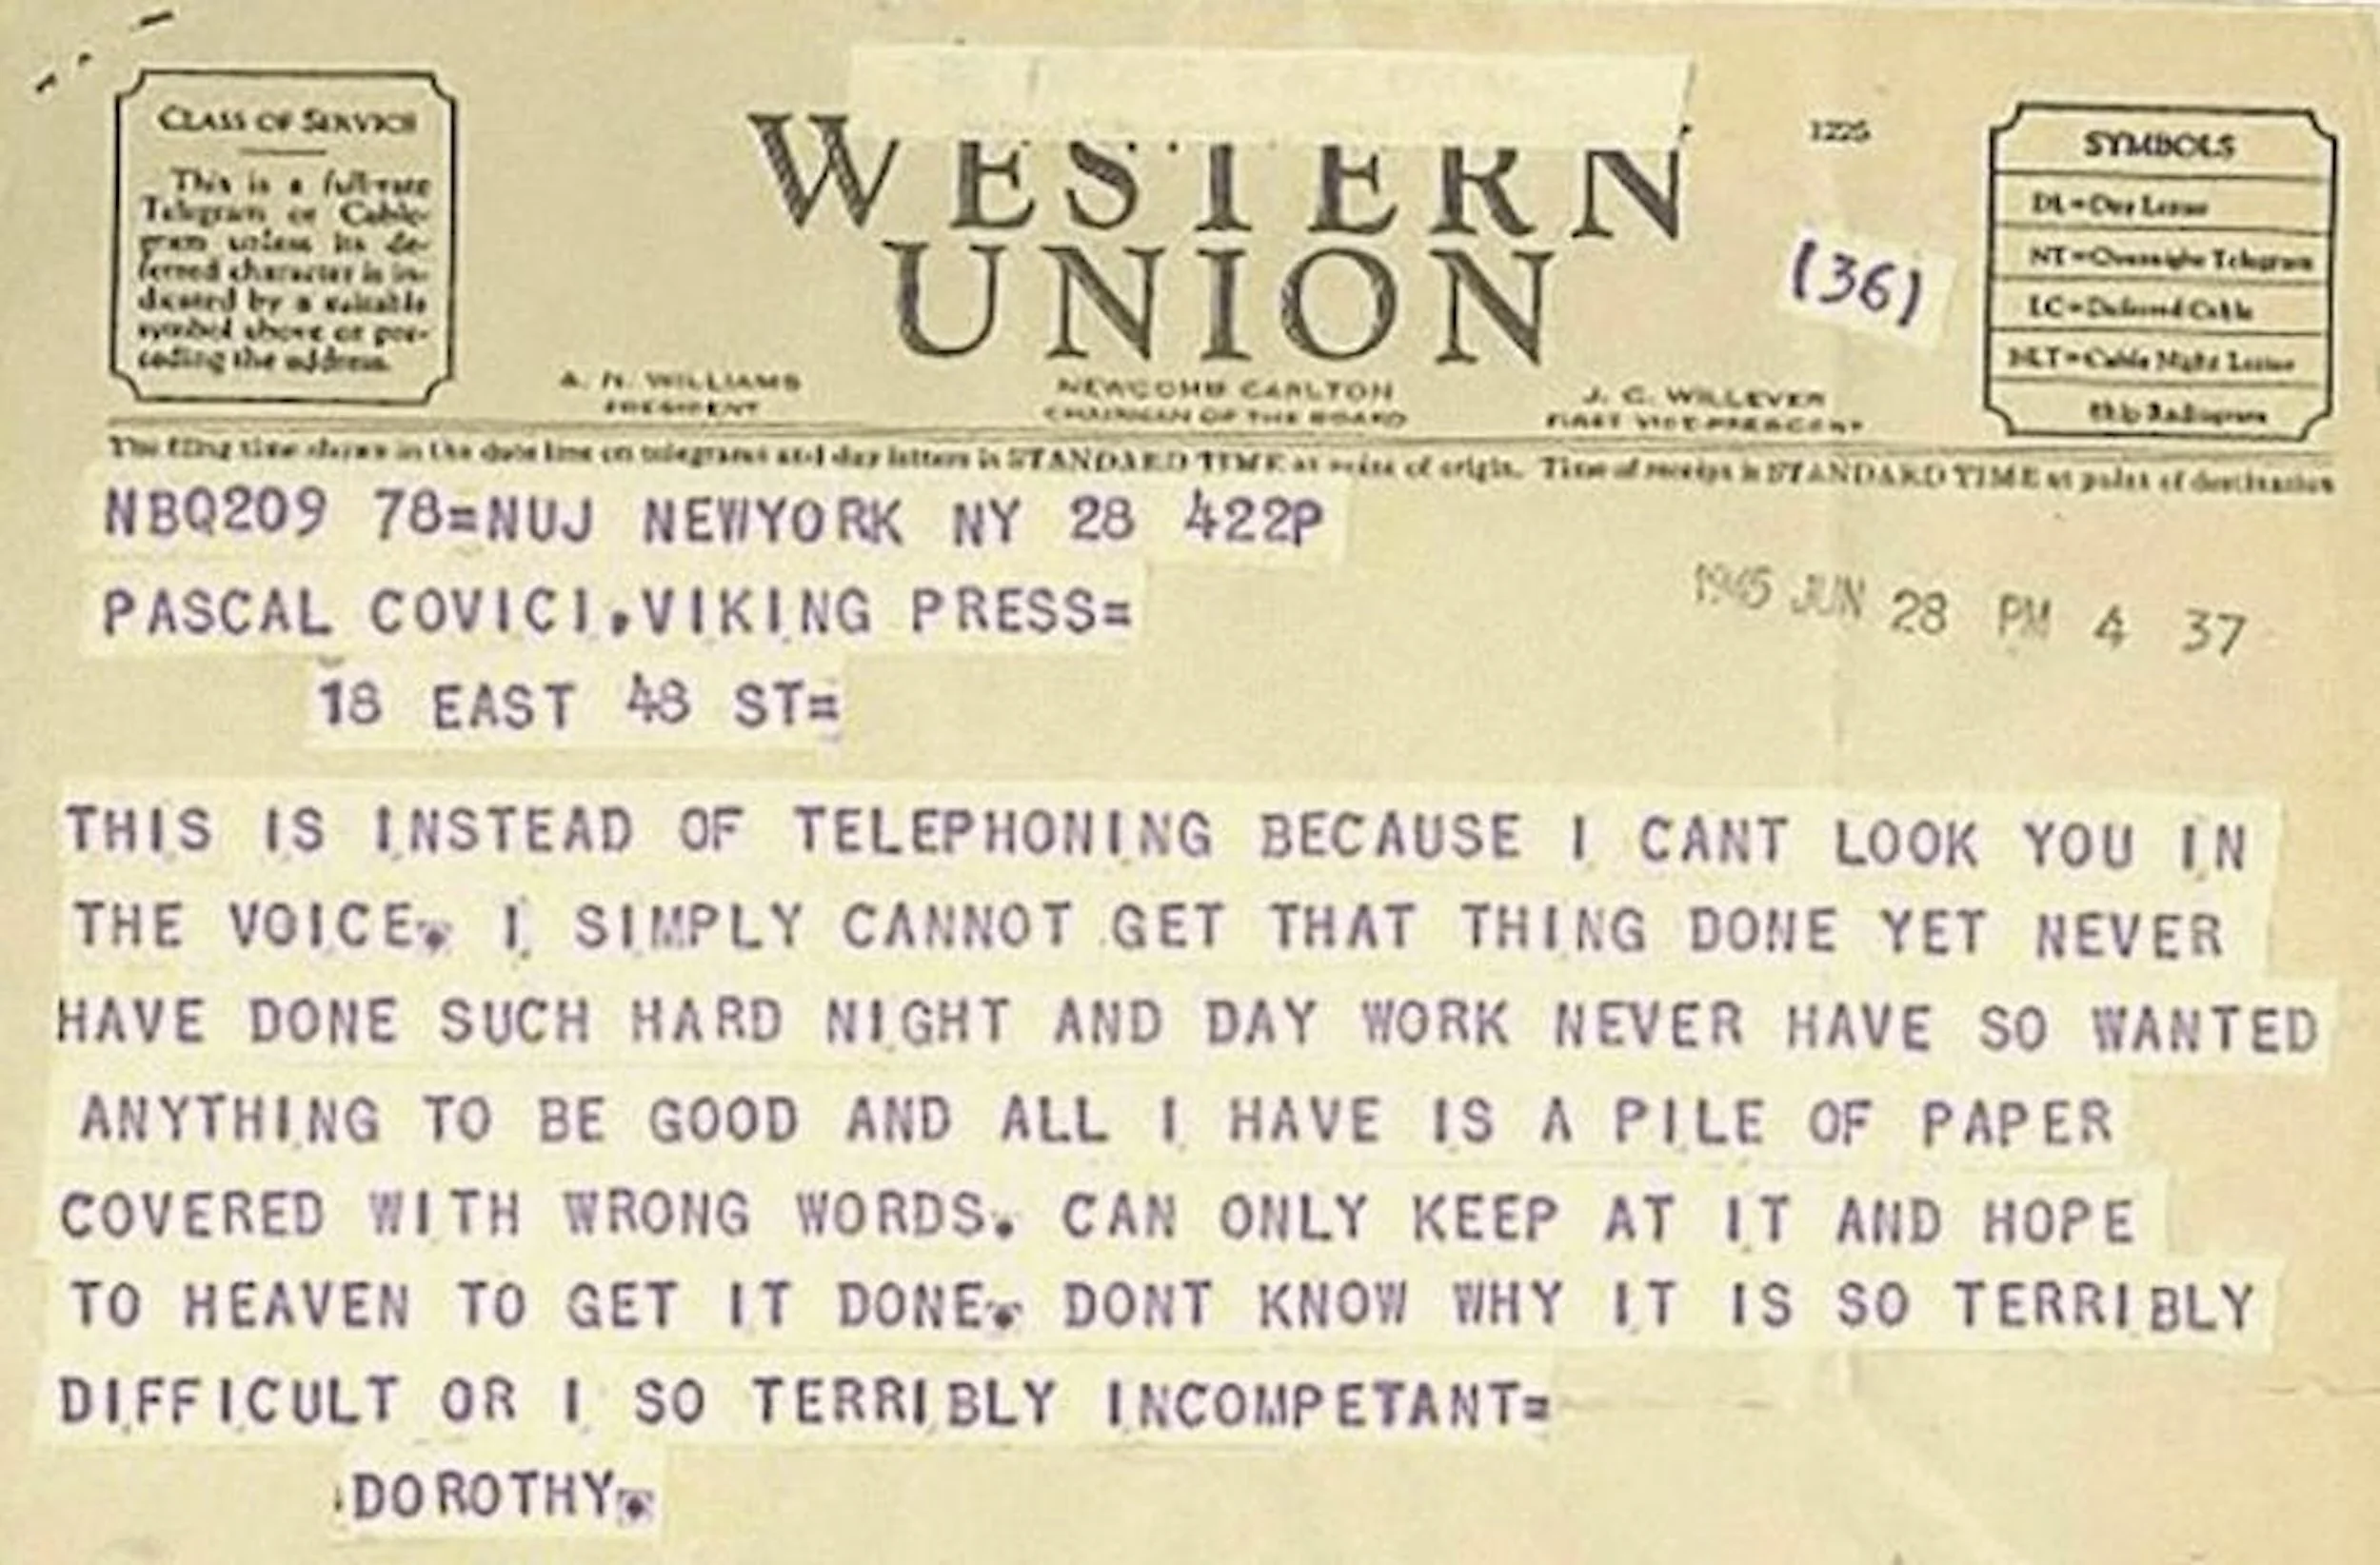 CLASS OF SERVICE
This is a full-rate
Telegram or Cable-
gram unless its de-
ferred character is in-
dicated by a suitable
symbol above or pre-
ceding the address.
WESTERN
UNION
1225
(36)
SYMBOLS
DL=Day Letter
NT=Overnight Telegram
LC=Deferred Cable
NLT=Cable Night Letter
Ship Radiogram
A. N. WILLIAMS
PRESIDENT
NEWCOMB CARLTON
CHAIRMAN OF THE BOARD
J. C. WILLEVER
FIRST VICE-PRESIDENT
The filing time shown in the date line on telegrams and day letters is STANDARD TIME at point of origin. Time of receipt is STANDARD TIME at point of destination
NBQ209 78=NUJ NEWYORK NY 28 422P
PASCAL COVICI,VIKING PRESS=
1945 JUN 28 PM 4 37
18 EAST 48 ST=
THIS IS INSTEAD OF TELEPHONING BECAUSE I CANT LOOK YOU IN
THE VOICE. I SIMPLY CANNOT GET THAT THING DONE YET NEVER
HAVE DONE SUCH HARD NIGHT AND DAY WORK NEVER HAVE SO WANTED
ANYTHING TO BE GOOD AND ALL I HAVE IS A PILE OF PAPER
COVERED WITH WRONG WORDS. CAN ONLY KEEP AT IT AND HOPE
TO HEAVEN TO GET IT DONE. DONT KNOW WHY IT IS SO TERRIBLY
DIFFICULT OR I SO TERRIBLY INCOMPETANT=
DOROTHY.